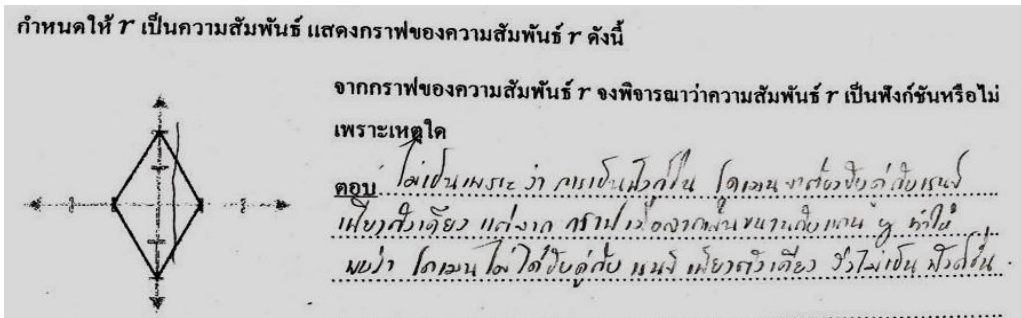 กำหนดให้ r เป็นความสัมพันธ์ แสดงกราฟของความสัมพันธ์ r ดังนี้
จากกราฟของความสัมพันธ์ r จงพิจารณาว่าความสัมพันธ์ r เป็นฟังก์ชันหรือไม่
เพราะเหตุใด
ตอบ ไม่เป็นเพราะ ว่า การเป็นฟังก์ชัน โดเมน จะต้องจับคู่กับเรนจ์
เพียงตัวเดียว แต่จาก กราฟ เมื่อลากเส้นขนานกับแกน y ทำให้
พบว่า โดเมน ไม่ได้จับคู่กับ เรนจ์ เพียงตัวเดียว จึงไม่เป็น ฟังก์ชัน